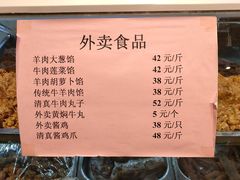 外卖食品
羊肉大葱馅 42 元/斤
牛肉莲菜馅 42 元/斤
羊肉胡萝卜馅 38 元/斤
传统牛羊肉馅 38 元/斤
清真牛肉丸子 52 元/斤
外卖黄焖牛丸 5 元/个
外卖酱鸡 38 元/只
清真酱鸡爪 48 元/斤